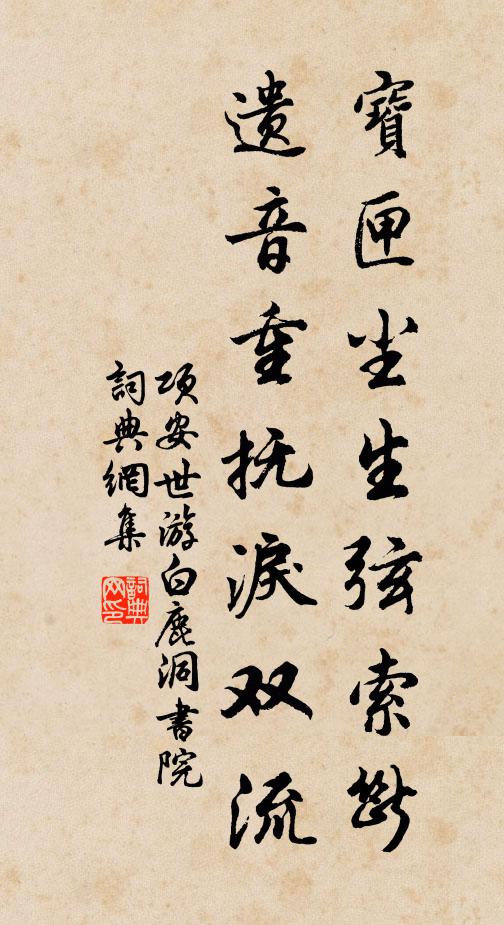 寶匣尘生弦索斷
遺音重抚淚双流
项安世游白鹿洞書院
詞典網集
詞典網印